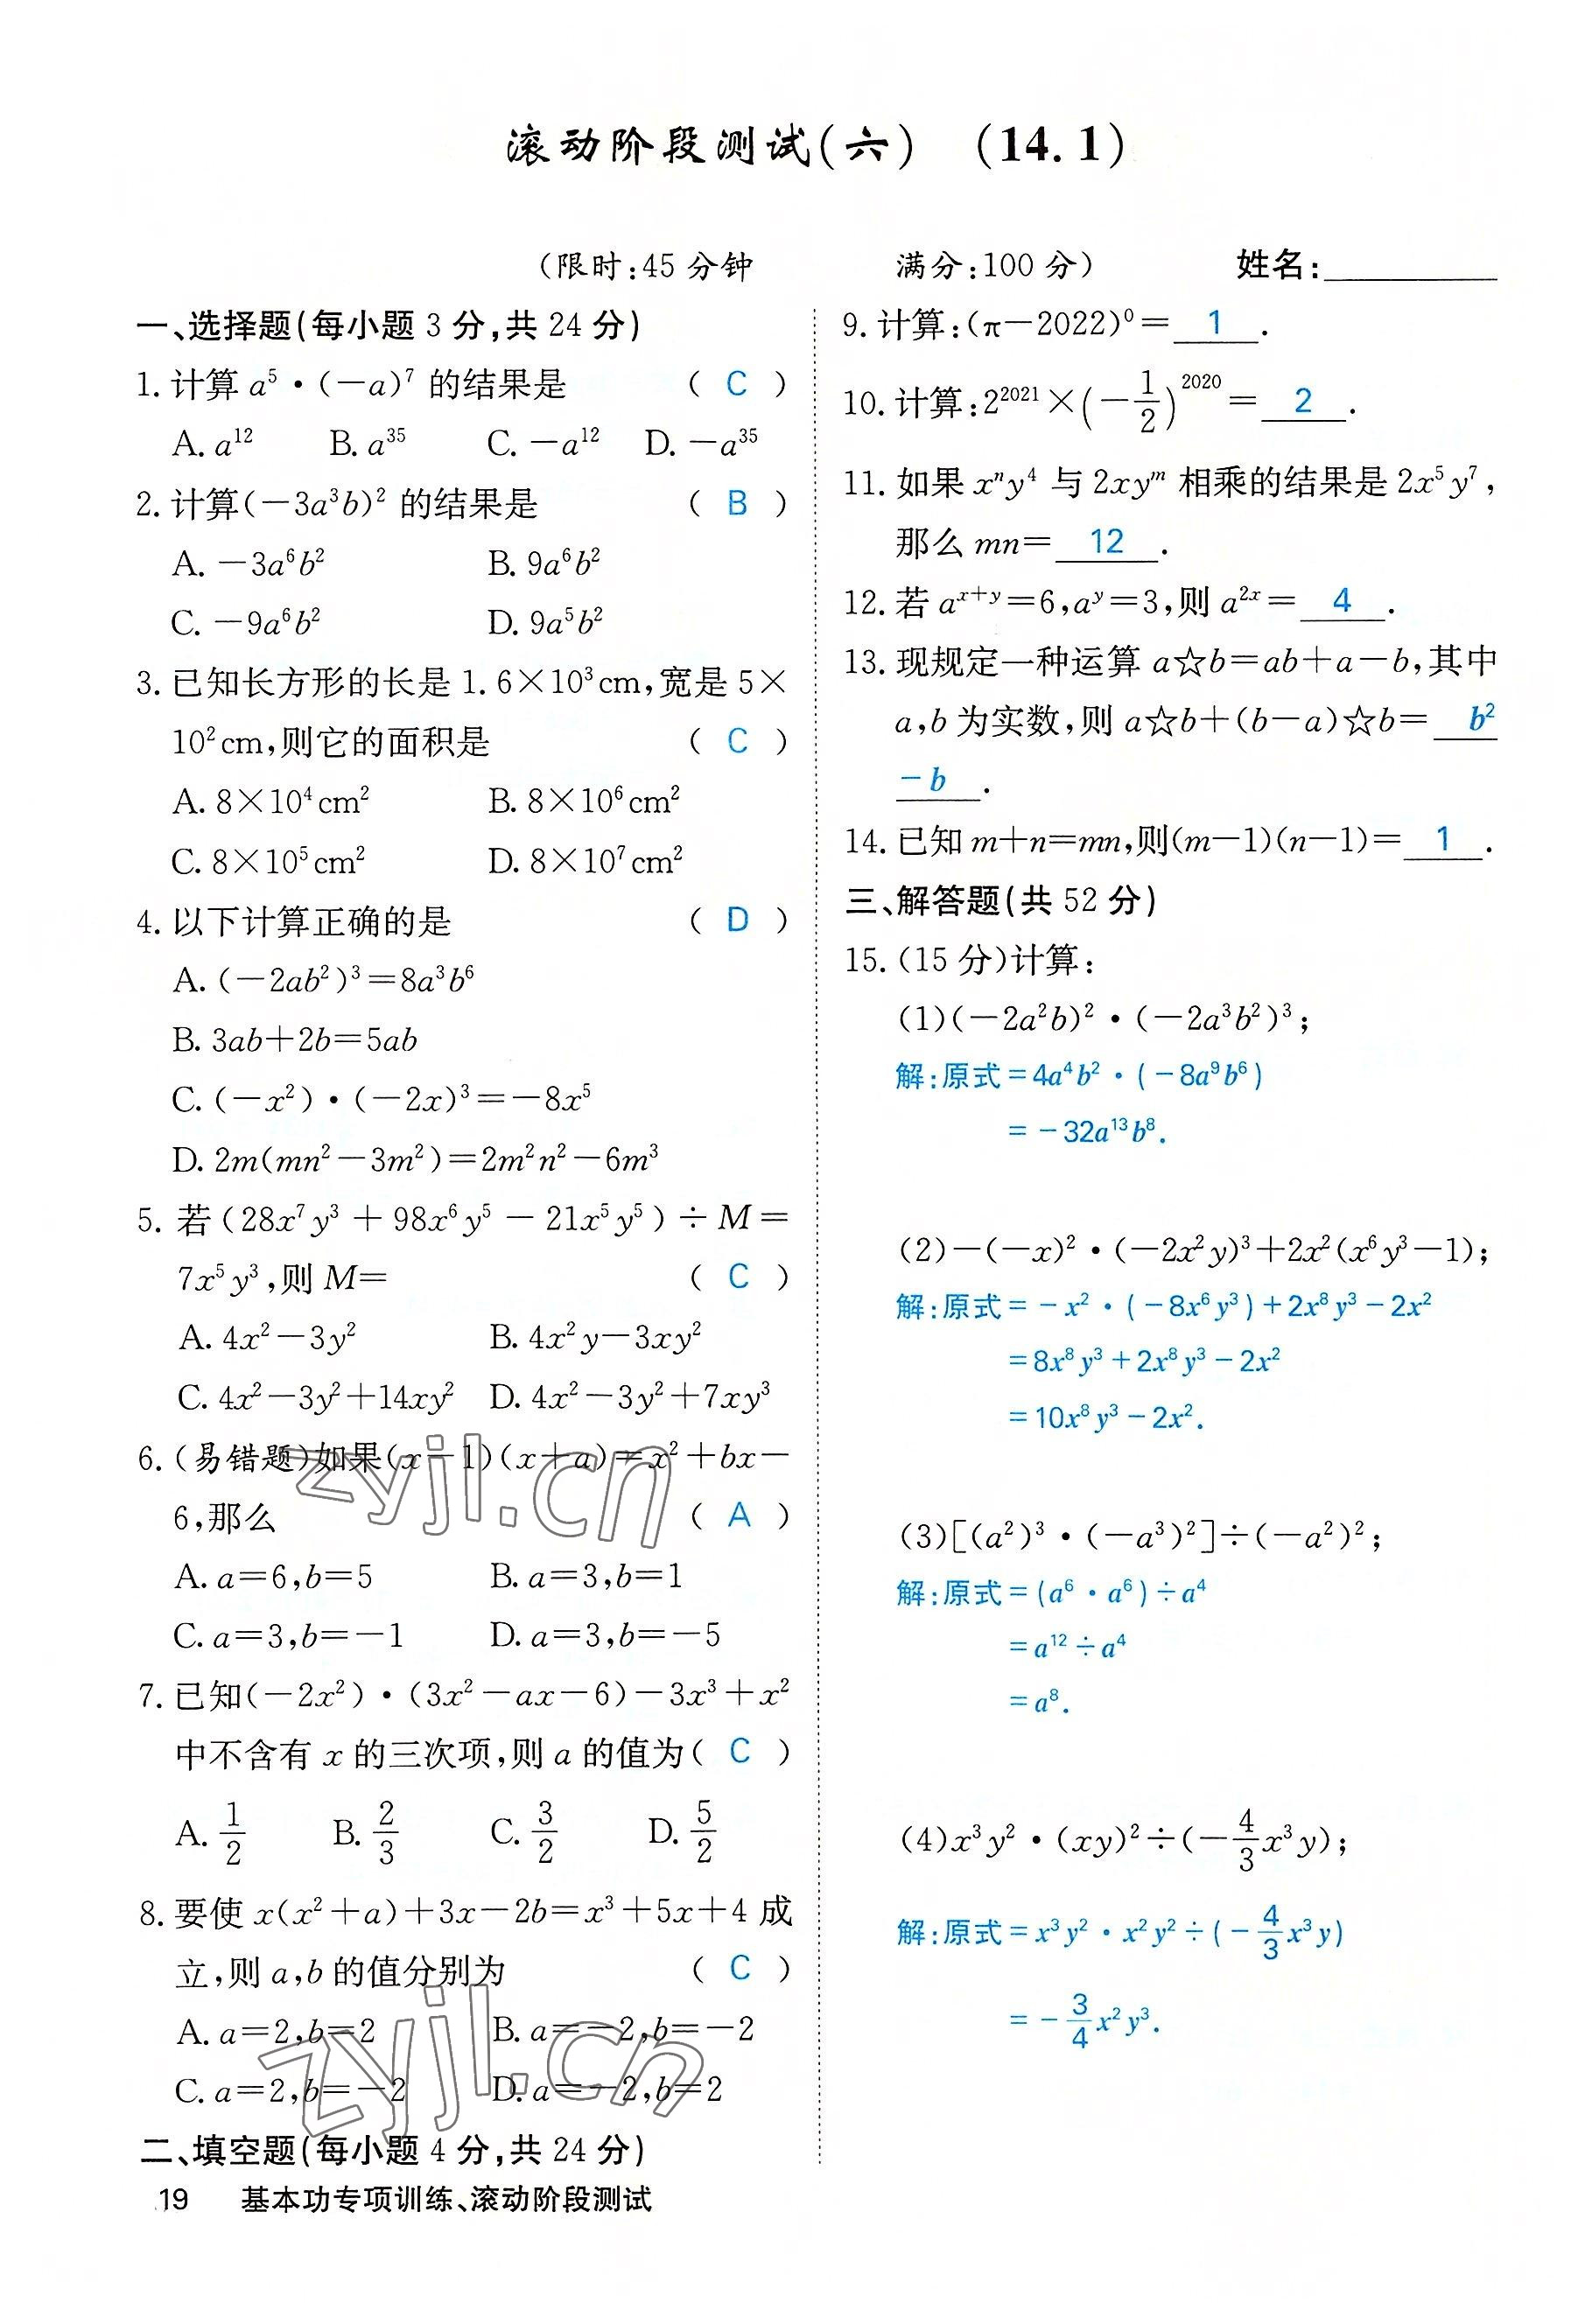 滚动阶段测试(六) (14.1)
(限时:45分钟 满分:100分) 姓名:
一、选择题(每小题3分,共24分)
1.计算a⁵·(-a)⁷的结果是 ( C )
A. a¹² B. a³⁵ C. -a¹² D. -a³⁵
2.计算(-3a³b)²的结果是 ( B )
A. -3a⁶b² B. 9a⁶b²
C. -9a⁶b² D. 9a⁵b²
3.已知长方形的长是1.6×10³cm,宽是5×
10²cm,则它的面积是 ( C )
A. 8×10⁴cm² B. 8×10⁶cm²
C. 8×10⁵cm² D. 8×10⁷cm²
4.以下计算正确的是 ( D )
A. (-2ab²)³=8a³b⁶
B. 3ab+2b=5ab
C. (-x²)·(-2x)³=-8x⁵
D. 2m(mn²-3m²)=2m²n²-6m³
5.若(28x⁷y³+98x⁶y⁵-21x⁵y⁵)÷M=
7x⁵y³,则M= ( C )
A. 4x²-3y² B. 4x²y-3xy²
C. 4x²-3y²+14xy² D. 4x²-3y²+7xy³
6.(易错题)如果(x-1)(x+a)=x²+bx-
6,那么 ( A )
A. a=6,b=5 B. a=3,b=1
C. a=3,b=-1 D. a=3,b=-5
7.已知(-2x²)·(3x²-ax-6)-3x³+x²
中不含有x的三次项,则a的值为( C )
A. 1/2 B. 2/3 C. 3/2 D. 5/2
8.要使x(x²+a)+3x-2b=x³+5x+4成
立,则a,b的值分别为 ( C )
A. a=2,b=2 B. a=-2,b=-2
C. a=2,b=-2 D. a=-2,b=2
二、填空题(每小题4分,共24分)
9.计算:(π-2022)⁰= 1 .
10.计算:2²⁰²¹×(-1/2)²⁰²⁰= 2 .
11.如果xⁿy⁴与2xyᵐ相乘的结果是2x⁵y⁷,
那么mn= 12 .
12.若aˣ⁺ʸ=6,aʸ=3,则a²ˣ= 4 .
13.现规定一种运算a☆b=ab+a-b,其中
a,b为实数,则a☆b+(b-a)☆b= b²
-b .
14.已知m+n=mn,则(m-1)(n-1)= 1 .
三、解答题(共52分)
15.(15分)计算:
(1)(-2a²b)²·(-2a³b²)³;
解:原式=4a⁴b²·(-8a⁹b⁶)
=-32a¹³b⁸.
(2)-(-x)²·(-2x²y)³+2x²(x⁶y³-1);
解:原式=-x²·(-8x⁶y³)+2x⁸y³-2x²
=8x⁸y³+2x⁸y³-2x²
=10x⁸y³-2x².
(3)[(a²)³·(-a³)²]÷(-a²)²;
解:原式=(a⁶·a⁶)÷a⁴
=a¹²÷a⁴
=a⁸.
(4)x³y²·(xy)²÷(-4/3x³y);
解:原式=x³y²·x²y²÷(-4/3x³y)
=-3/4x²y³.
19 基本功专项训练、滚动阶段测试
zyjl.cn
zyjl.cn